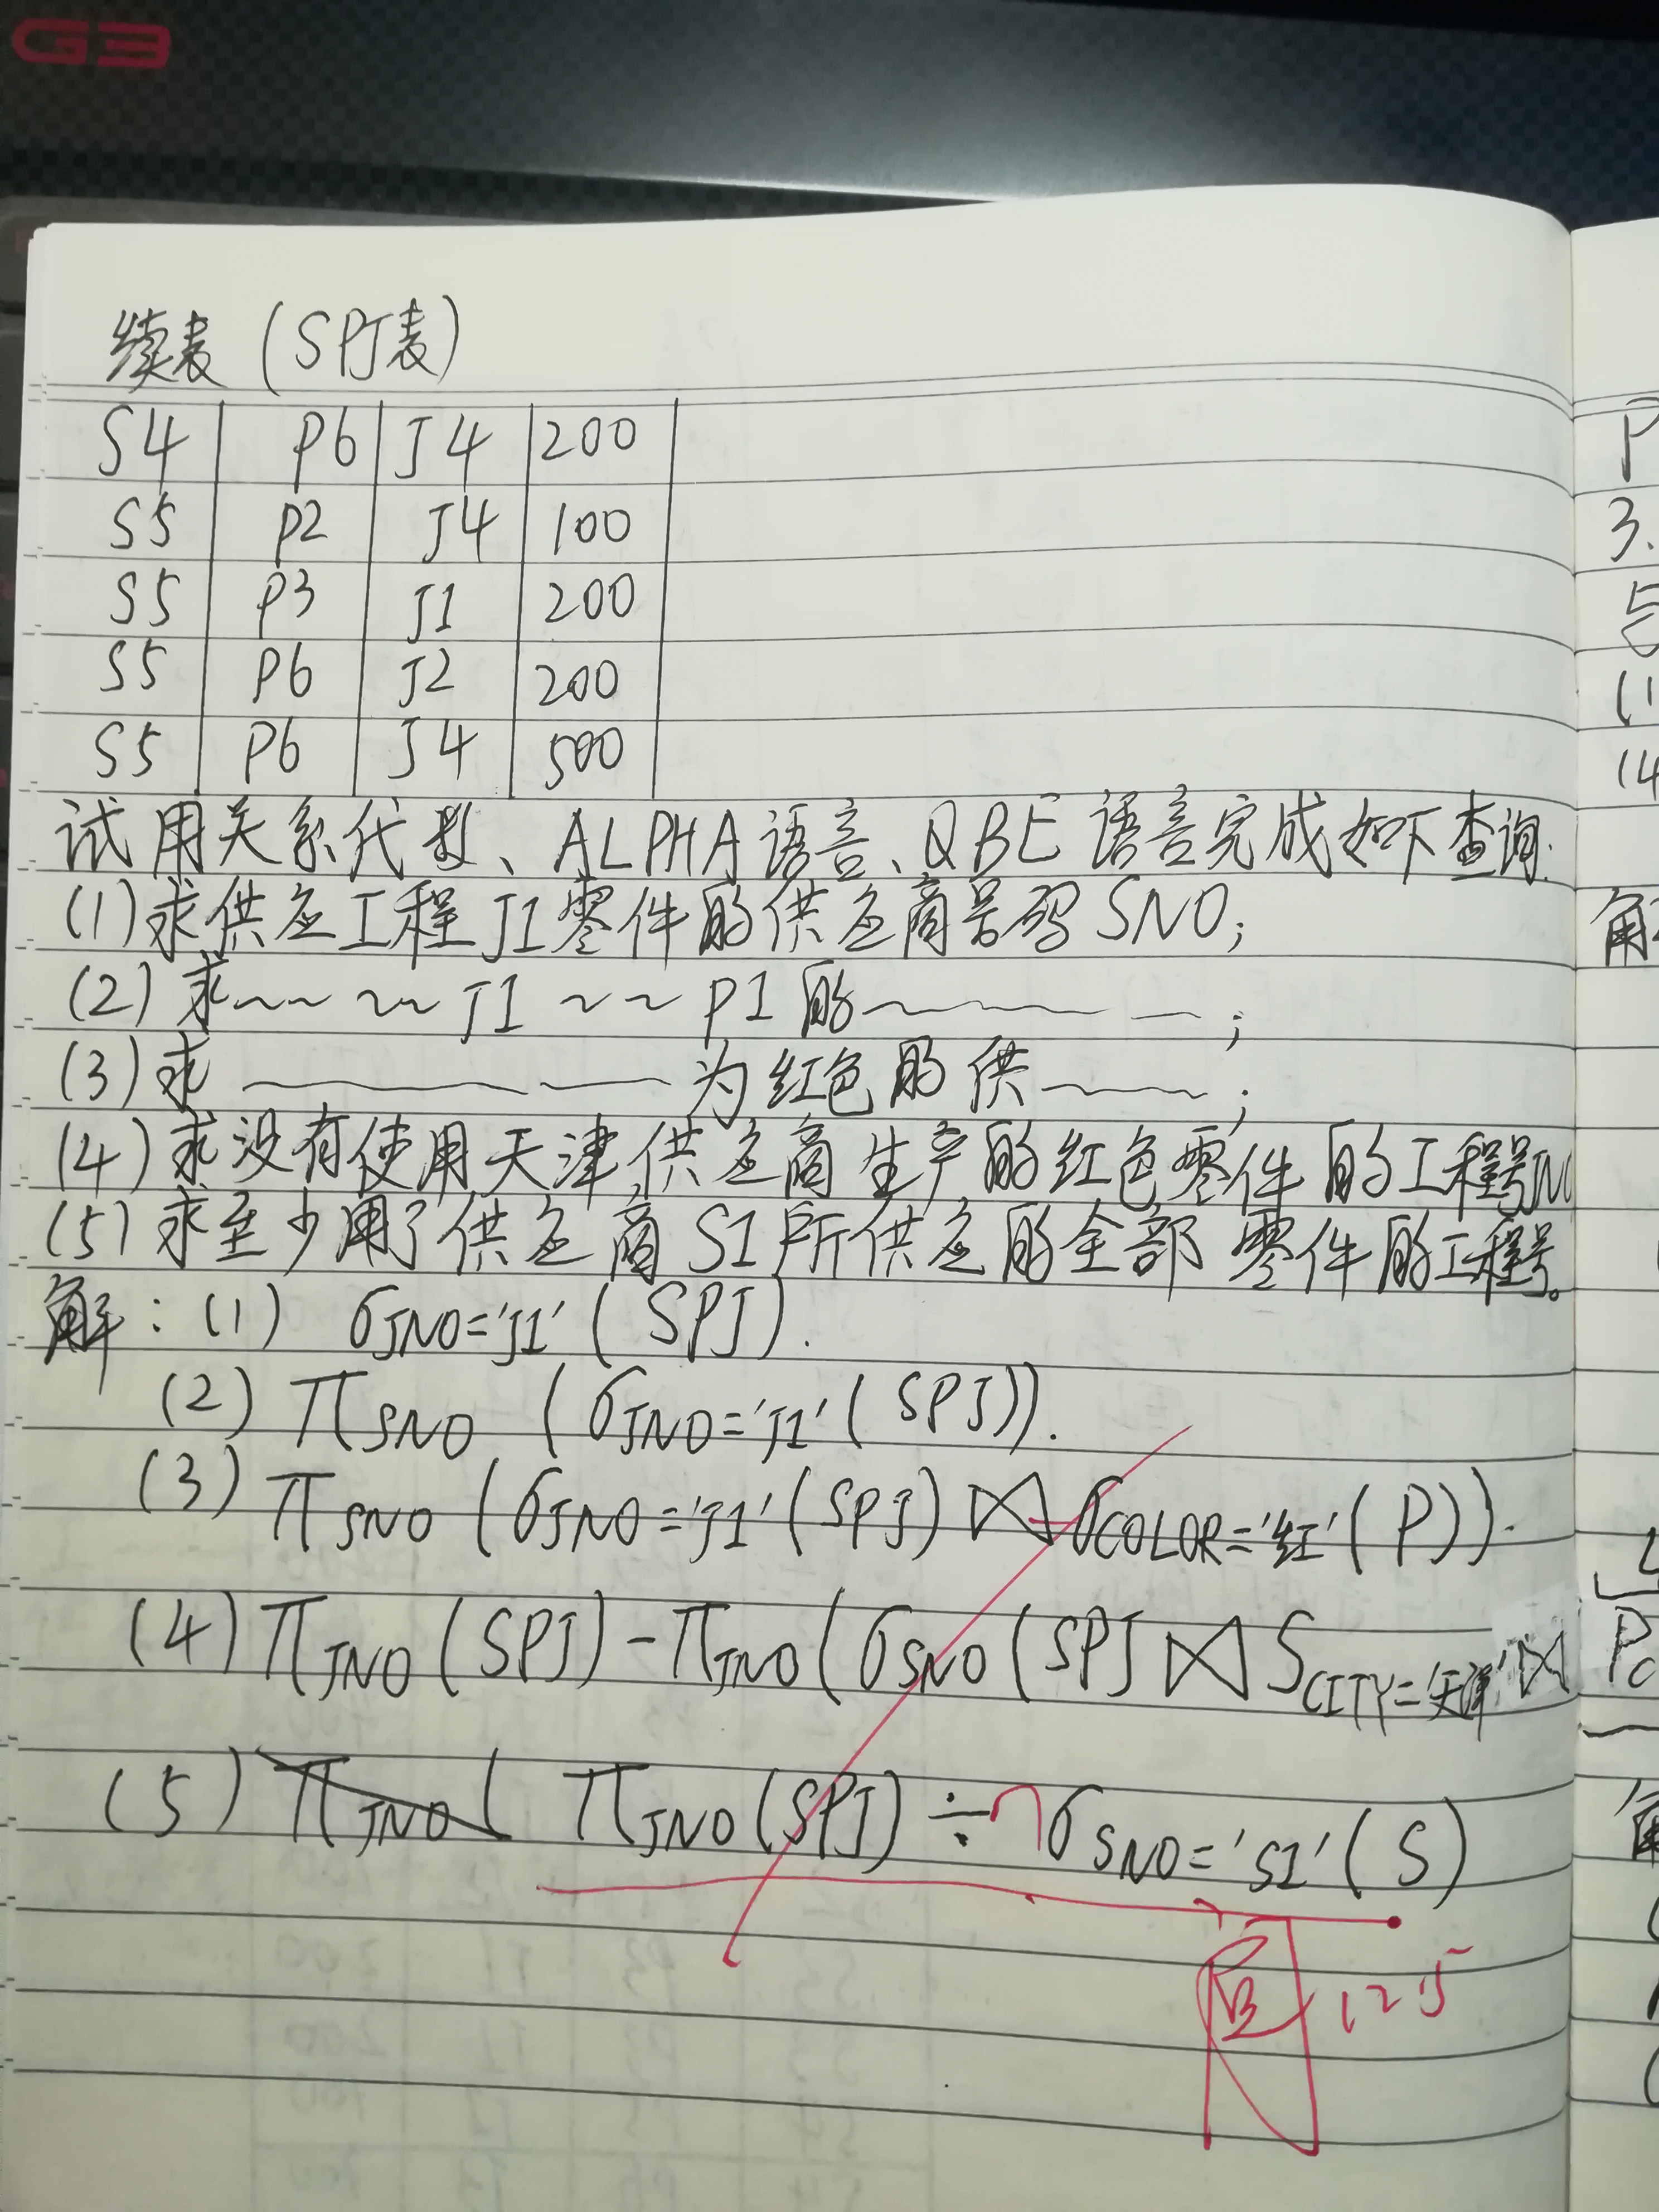 G3
续表（SPJ表）
S4 P6 J4 200
S5 P2 J4 100
S5 P3 J1 200
S5 P6 J2 200
S5 P6 J4 500
试用关系代数、ALPHA语言、QBE语言完成如下查询.
(1)求供应工程J1零件的供应商号码SNO;
(2)求~~ ~~ J1 ~~ P1的~~~ —;
(3)求 ~~~ — 为红色的供~~~;
(4)求没有使用天津供应商生产的红色零件的工程号
(5)求至少用了供应商S1所供应的全部零件的工程号。
解：(1) σJNO='J1'(SPJ).
(2) πSNO (σJNO='J1'(SPJ)).
(3) πSNO (σJNO='J1'(SPJ)⋈σCOLOR='红'(P)).
(4) πJNO(SPJ)-πJNO(σSNO(SPJ⋈S CITY='天津'⋈
(5) πJNO( πJNO(SPJ)÷σSNO='S1'(S)
12.5
P
3.
(1
(4
解